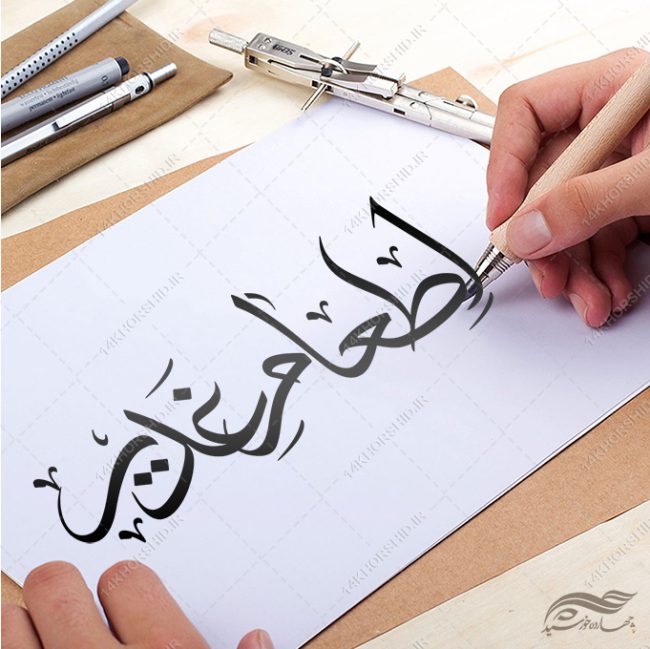 اطعام غدیر
14KHORSHID.IR
چهارده خورشید